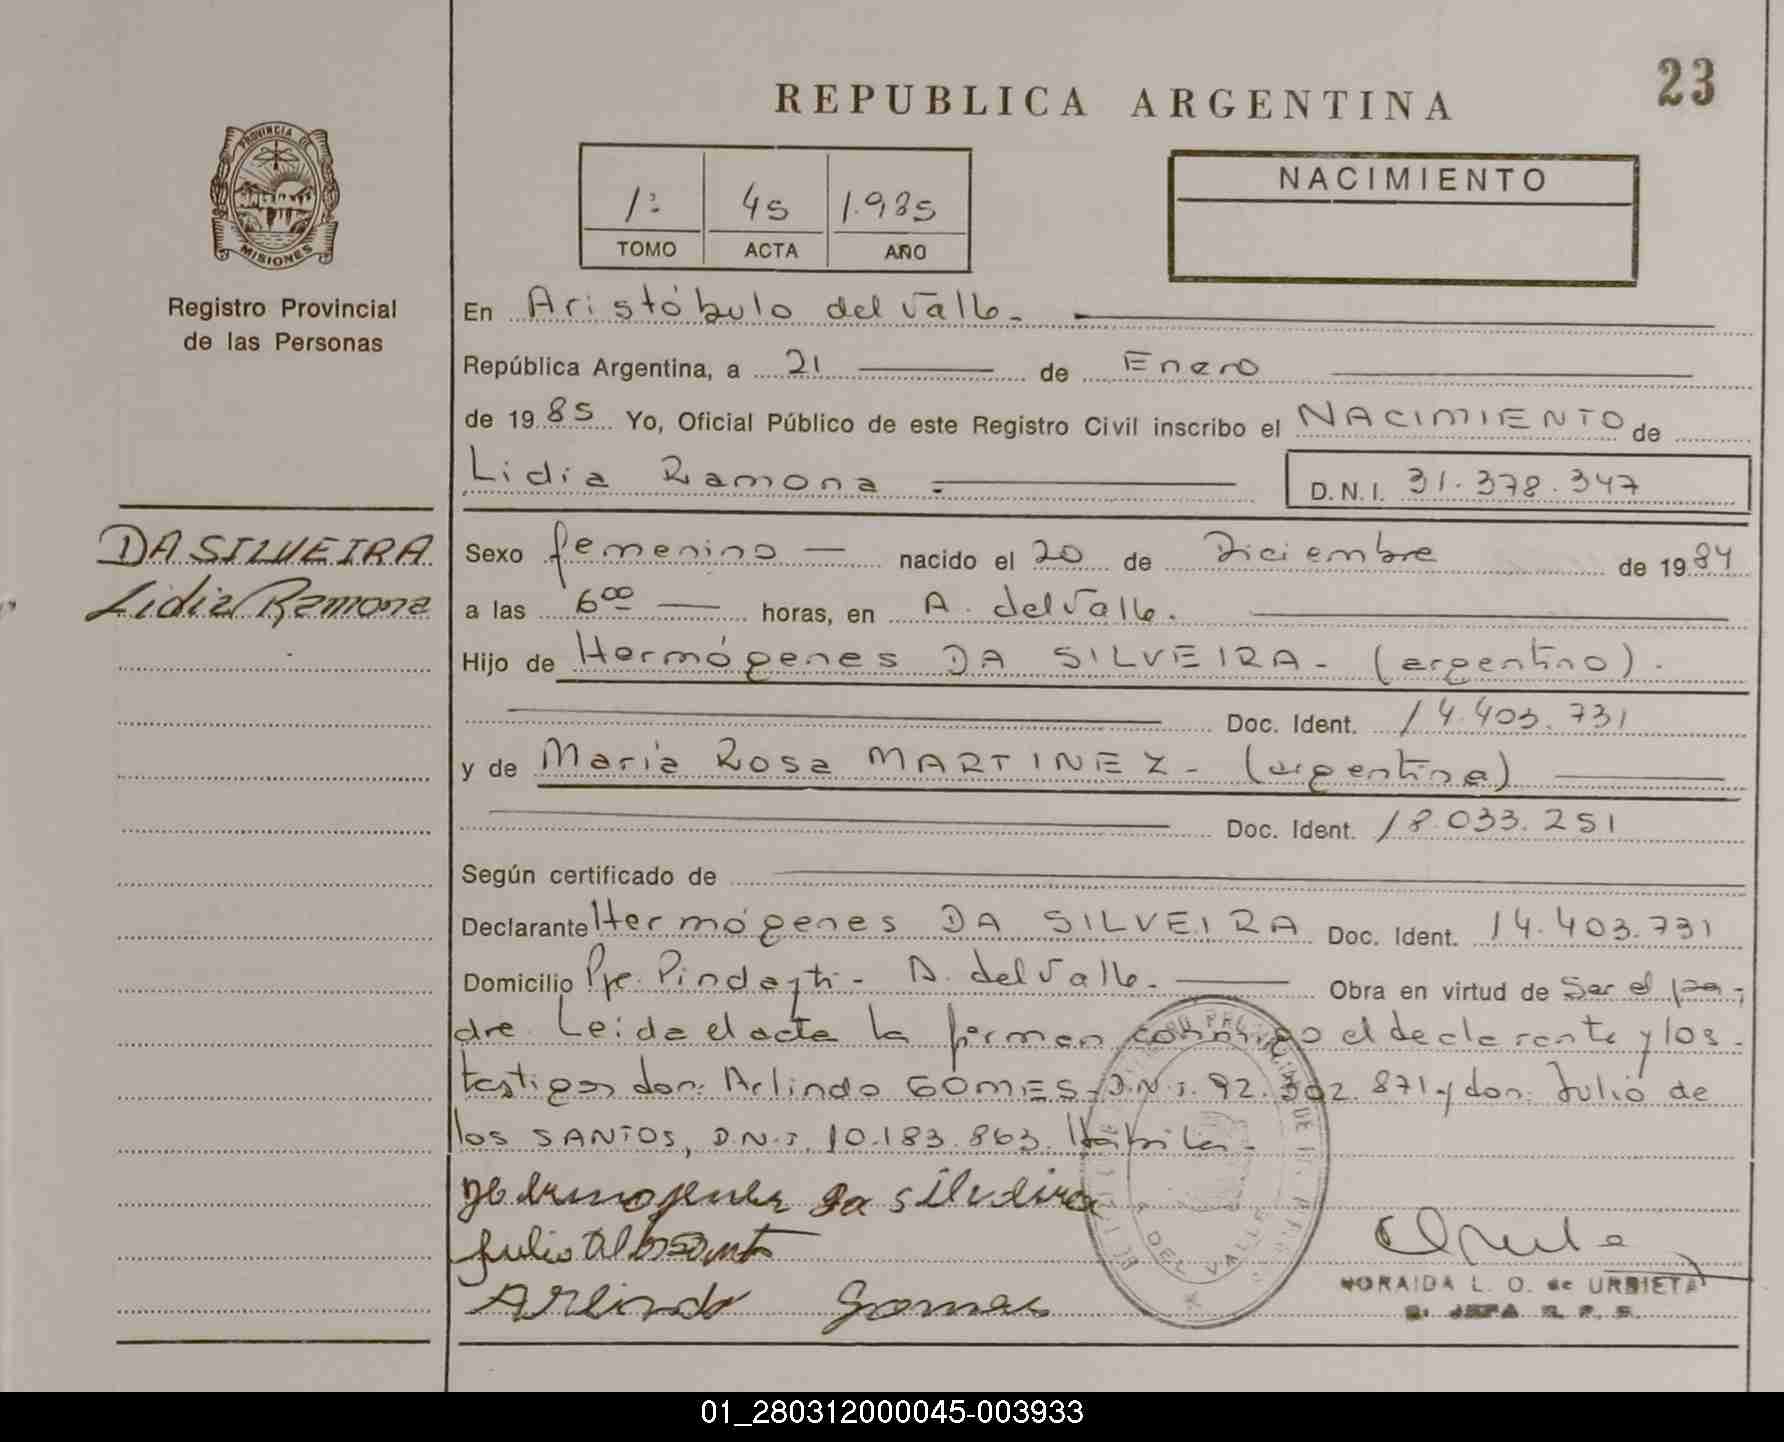 23
REPUBLICA ARGENTINA
PROVINCIA DE
MISIONES
Registro Provincial
de las Personas
1º 45 1.985
TOMO ACTA AÑO
NACIMIENTO
En Aristóbulo del Valle.-
República Argentina, a 21 de Enero
de 1985 Yo, Oficial Público de este Registro Civil inscribo el NACIMIENTO de
Lidia Ramona.- D.N.I. 31.378.347
DA SILVEIRA
Lidia Ramona
Sexo femenino nacido el 20 de Diciembre de 1984
a las 6 00 horas, en A. del Valle.
Hijo de Hermógenes DA SILVEIRA- (argentino).
Doc. Ident. 14.403.731
y de Maria Rosa MARTINEZ- (argentina)
Doc. Ident. 18.033.251
Según certificado de
Declarante Hermógenes DA SILVEIRA Doc. Ident. 14.403.731
Domicilio Pje. Pindayti- A. del Valle.- Obra en virtud de Ser el pa-
dre. Leida el acta la firman conmigo el declarante y los
testigos don: Arlindo GOMES-D.N.I. 92.302.871 y don: Julio de
los SANTOS, D.N.I. 10.183.863. Hábiles.-
Hermogenes Da Silveira
Arlindo Gomes
A. DEL VALLE
NORAIDA L. O. de URBIETA
JEFA R. P. P.
01_280312000045-003933